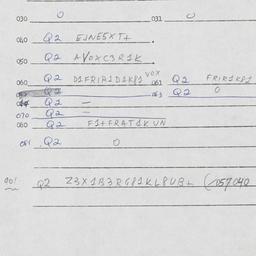 030 0 031 0
040 Q2 EJNE5XT+
050 Q2 AVOXC3R1K
060 Q2 D1FR1R1D1K81 VOX 061 Q2 FR1R1K81
Q2 063 Q2 0
Q2 —
070 Q2 —
080 Q2 F1+FRAT1KUN
081 Q2 0
001 Q2 Z3X1B3RG81KL8UB+ (057040